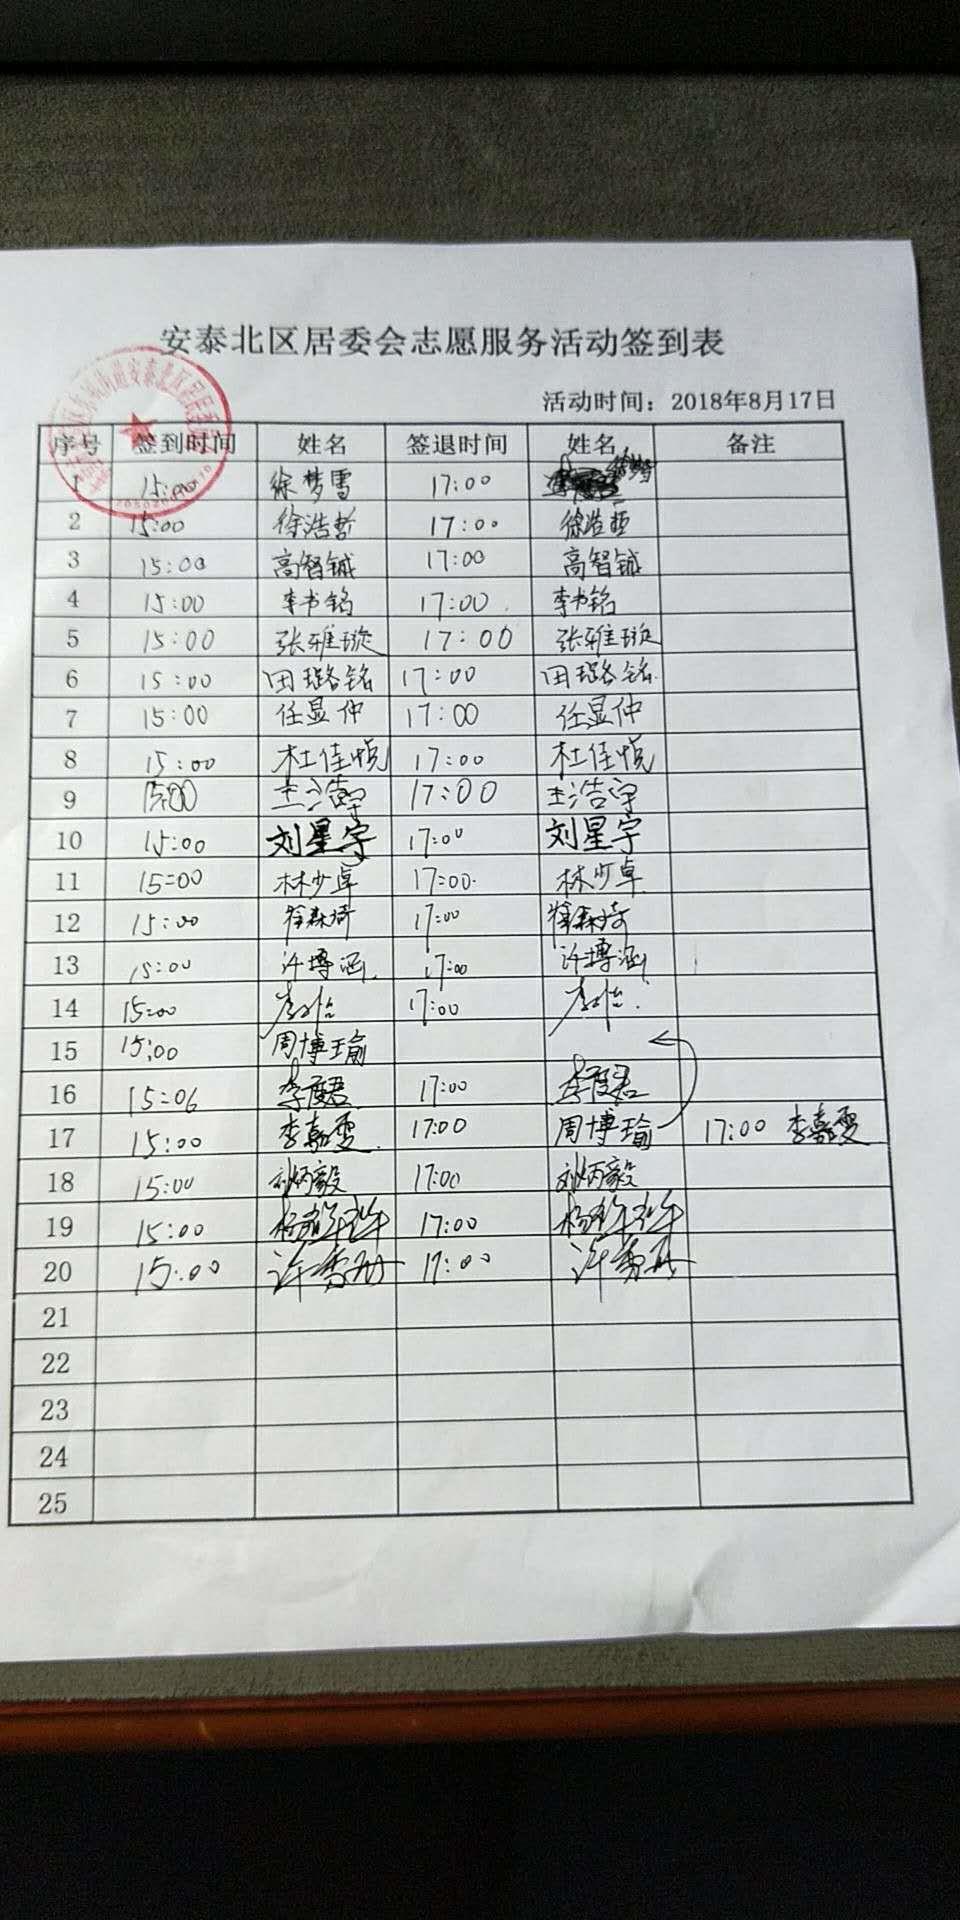 安泰北区居委会志愿服务活动签到表
活动时间：2018年8月17日
序号 签到时间 姓名 签退时间 姓名 备注
1 15:00 徐梦雪 17:00
2 15:00 徐浩哲 17:00 徐浩哲
3 15:00 高智铖 17:00 高智铖
4 15:00 李书铭 17:00 李书铭
5 15:00 张雅璇 17:00 张雅璇
6 15:00 田璐铭 17:00 田璐铭
7 15:00 任显仲 17:00 任显仲
8 15:00 杜佳悦 17:00 杜佳悦
9 15:00 王浩宇 17:00 王浩宇
10 15:00 刘星宇 17:00 刘星宇
11 15:00 林少卓 17:00 林少卓
12 15:00 17:00
13 15:00 许博涵 17:00 许博涵
14 15:00 17:00
15 15:00 周博瑜
16 15:06 李度君 17:00 李度君
17 15:00 李嘉雯 17:00 周博瑜 17:00 李嘉雯
18 15:00 刘炳毅 17:00 刘炳毅
19 15:00 17:00
20 15:00 17:00
21
22
23
24
25